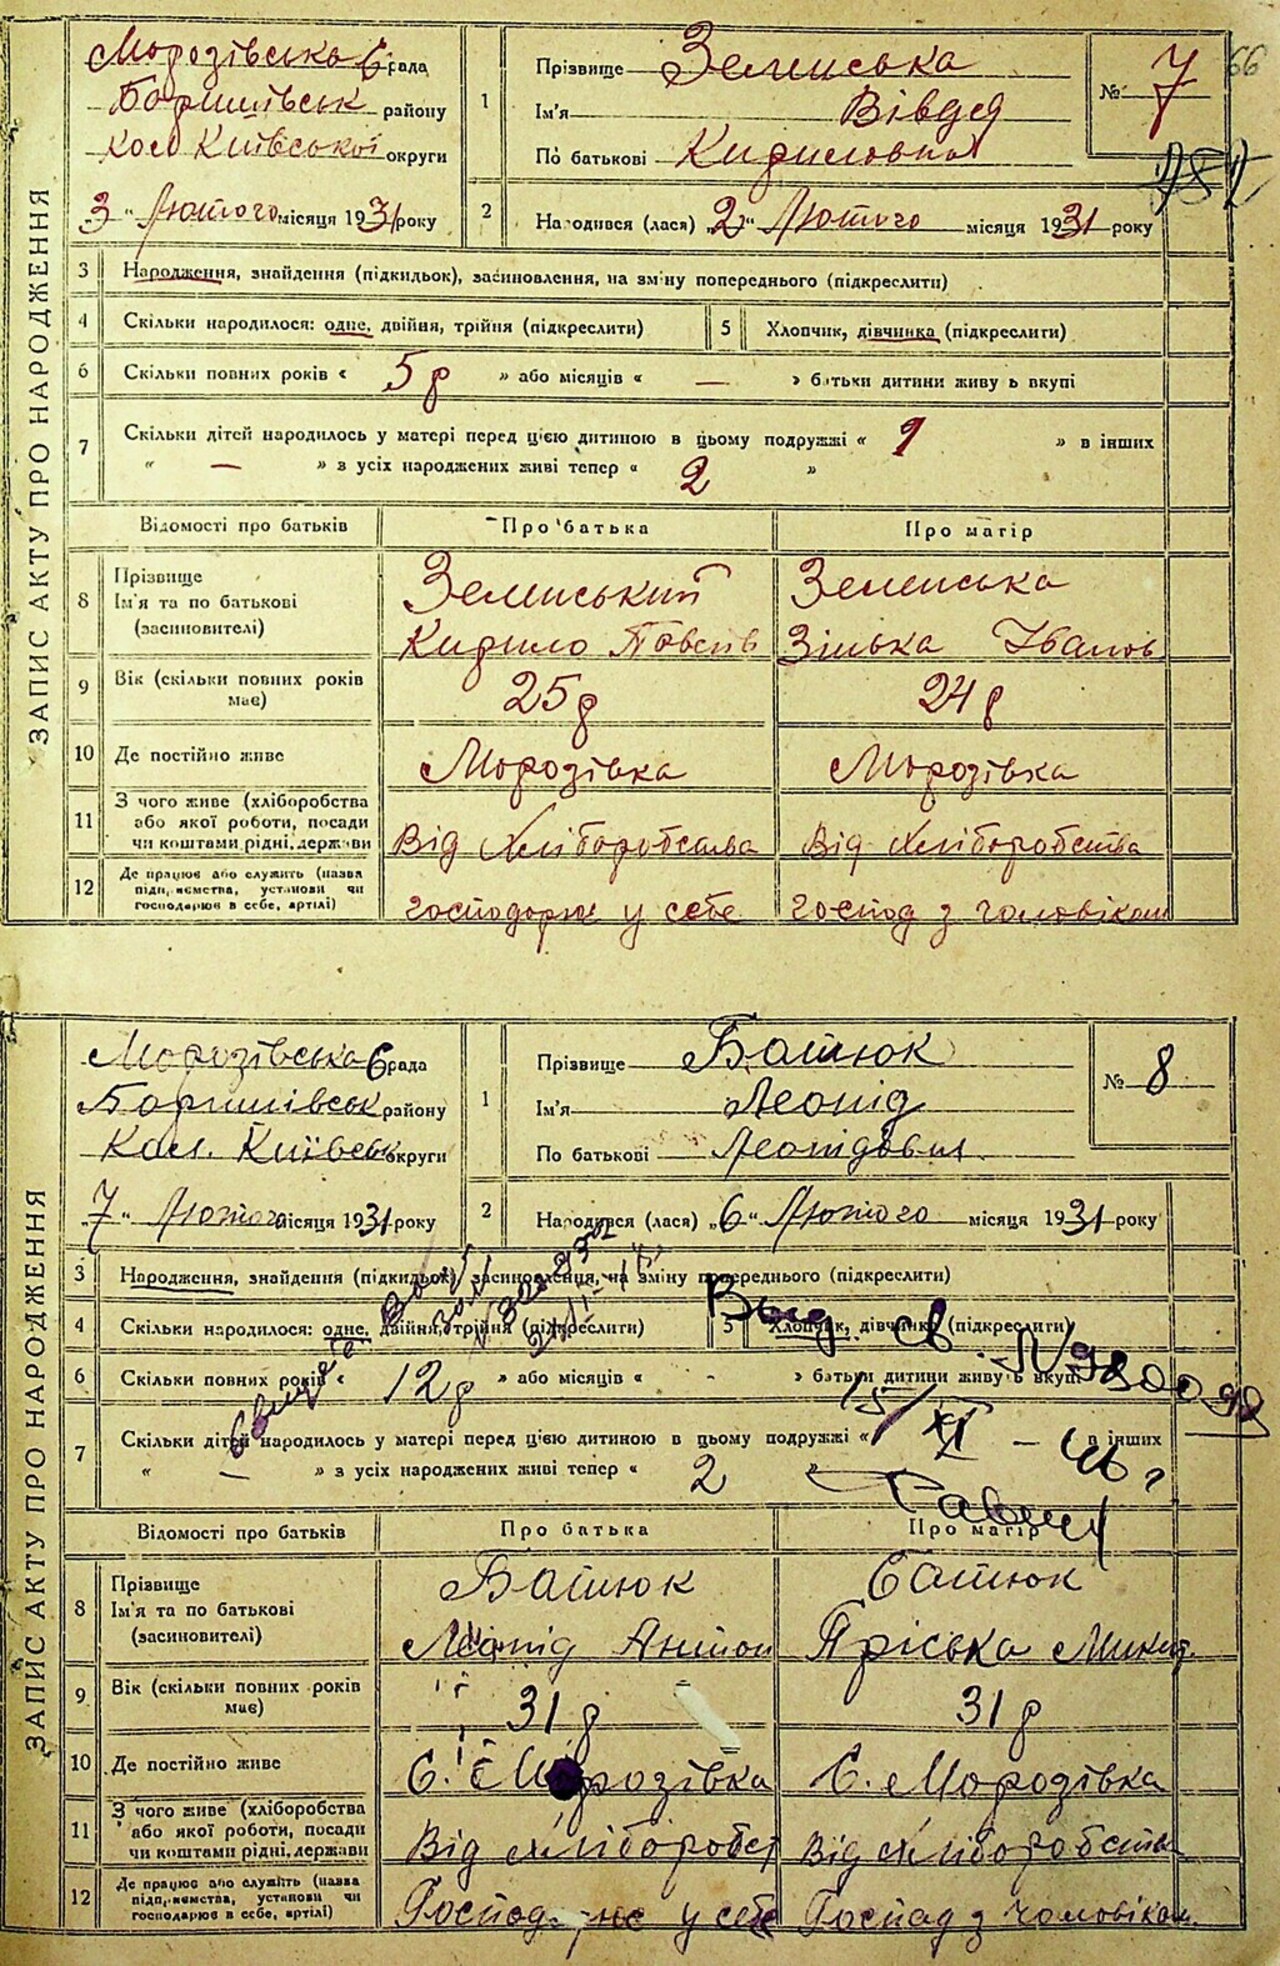 66
ЗАПИС АКТУ ПРО НАРОДЖЕННЯ
Морозівська С рада
Баришівськ району
Кол Київської округи
„3“ Лютого місяця 1931 року
1 Прізвище Земнська
Ім'я Вівдя
По батькові Кириловна
№ 7
2 Народився (лася) „2“ Лютого місяця 1931 року
3 Народження, знайдення (підкидьок), засиновлення, на зміну попереднього (підкреслити)
4 Скільки народилося: одне, двійня, трійня (підкреслити) 5 Хлопчик, дівчинка (підкреслити)
6 Скільки повних років « 5 р » або місяців « — » батьки дитини живуть вкупі
7 Скільки дітей народилось у матері перед цією дитиною в цьому подружжі « 1 » в інших
« — » з усіх народжених живі тепер « 2 »
Відомості про батьків Про батька Про матір
8 Прізвище
Ім'я та по батькові
(засиновителі)
Кирило Павлів Зінька Іванов
9 Вік (скільки повних років має) 25 р 24 р
10 Де постійно живе Морозівка Морозівка
11 З чого живе (хліборобства
або якої роботи, посади
чи коштами рідні, держави
Від Хліборобства Від Хліборобства
12 Де працює або служить (назва
підприємства, установи чи
господарює в себе, артілі)
господорює у себе господ з чоловіком
ЗАПИС АКТУ ПРО НАРОДЖЕННЯ
Морозівська С рада
Баришівськ району
Кол. Київськ округи
„7“ Лютого місяця 1931 року
1 Прізвище Батюк
Ім'я Леонід
По батькові Леонідович
№ 8
2 Народився (лася) „6“ Лютого місяця 1931 року
3 Народження, знайдення (підкидьок) засиновлення, на зміну попереднього (підкреслити)
4 Скільки народилося: одне, двійня, трійня (підкреслити) 5 Хлопчик, дівчинка (підкреслити)
Выд. св.
6 Скільки повних років « 12 р » або місяців « - » батьки дитини живуть вкупі
15/XI – 46 г
7 Скільки дітей народилось у матері перед цією дитиною в цьому подружжі « 1 » в інших
« — » з усіх народжених живі тепер « 2 »
Відомості про батьків Про батька Про матір
8 Прізвище
Ім'я та по батькові
(засиновителі)
Батюк Батюк
Леонід Антон Пріська Микит.
9 Вік (скільки повних років має) 31 р 31 р
10 Де постійно живе С. Морозівка С. Морозівка
11 З чого живе (хліборобства
або якої роботи, посади
чи коштами рідні, держави
Від хліборобст Від хліборобства
12 Де працює або служить (назва
підприємства, установи чи
господарює в себе, артілі)
Господарює у себе Господ з чоловіком.